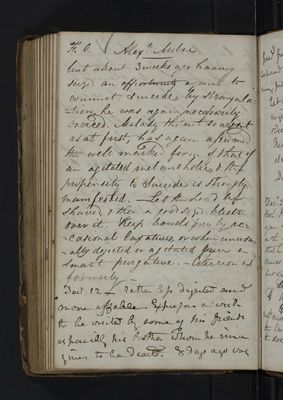 F. O. Alexr Milne
but about 3 weeks ago having
seized an opportunity again to
commit Suicide by Strangula
-tion, he was again necessarily
coerced.
as at first has again assumed
the well marked form of that of
an agitated melancholia, & the
propensity to Suicide is strongly
manifested. Let the head be
shaved, & then a good sized blister
over it. Keep bowels free by oc-
-casional laxatives, or when unusu-
-ally dejected or agitated give a
smart purgative. Coercion as
formerly.
Decr 12 Rather less dejected and
more affable. Expresses a wish
to be visited by some of his friends
especially his Brother whom he ima
gines to be dead. 8 days ago was